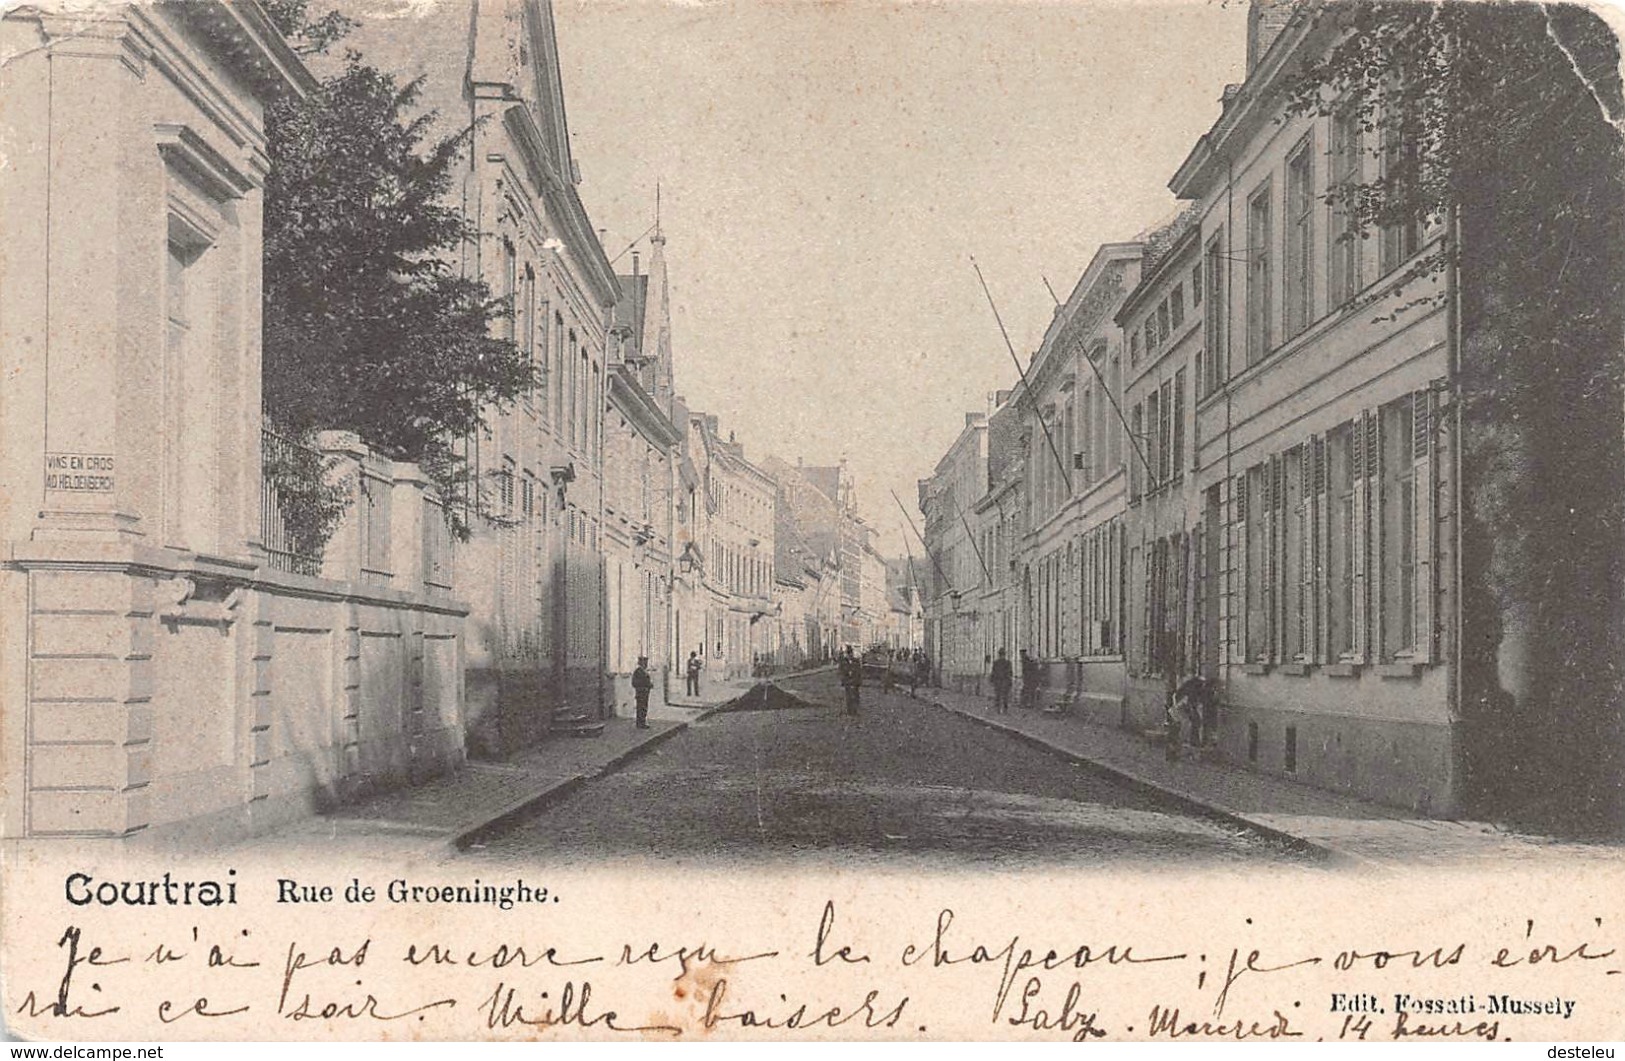 VINS EN GROS
AD HELDENBERGH
Courtrai Rue de Groeninghe.
Je n'ai pas encore reçu le chapeau ; je vous écri-
rai ce soir. Mille baisers. Gaby. Mercredi, 14 heures.
Edit. Fossati-Mussely
delcampe.net
desteleu